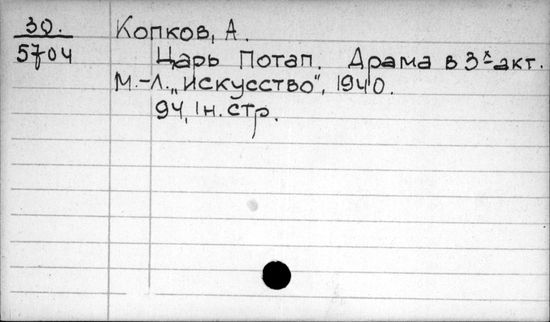 30.
5704
Копков, А.
Царь Потап. Драма в 3х акт.
М.-Л. „Искусство", 1940.
94, 1н. стр.